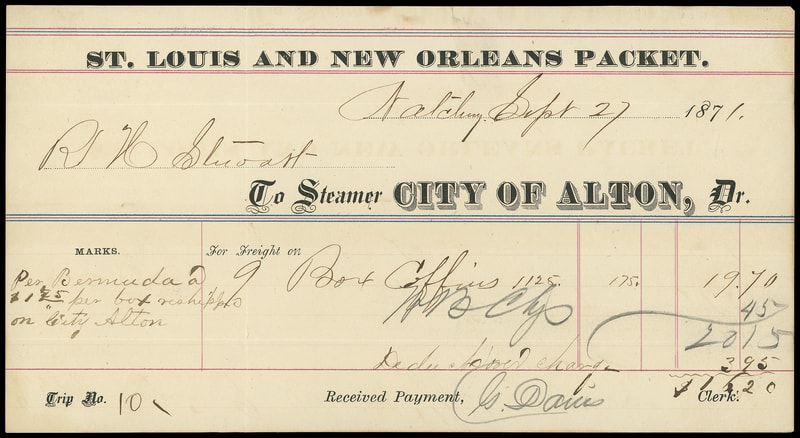 ST. LOUIS AND NEW ORLEANS PACKET.
Natchez, Sept 27 1871.
R H Stewart
To Steamer CITY OF ALTON, Dr.
MARKS. For Freight on
Per Bermuda @ 9 Box Coffins 1125. 175. 19.70
$1 25 per box reshippd WB Chgs 45
on City Alton 2015
Deduct over charge 395
$1620
Trip No. 10 Received Payment, G. Davis Clerk.